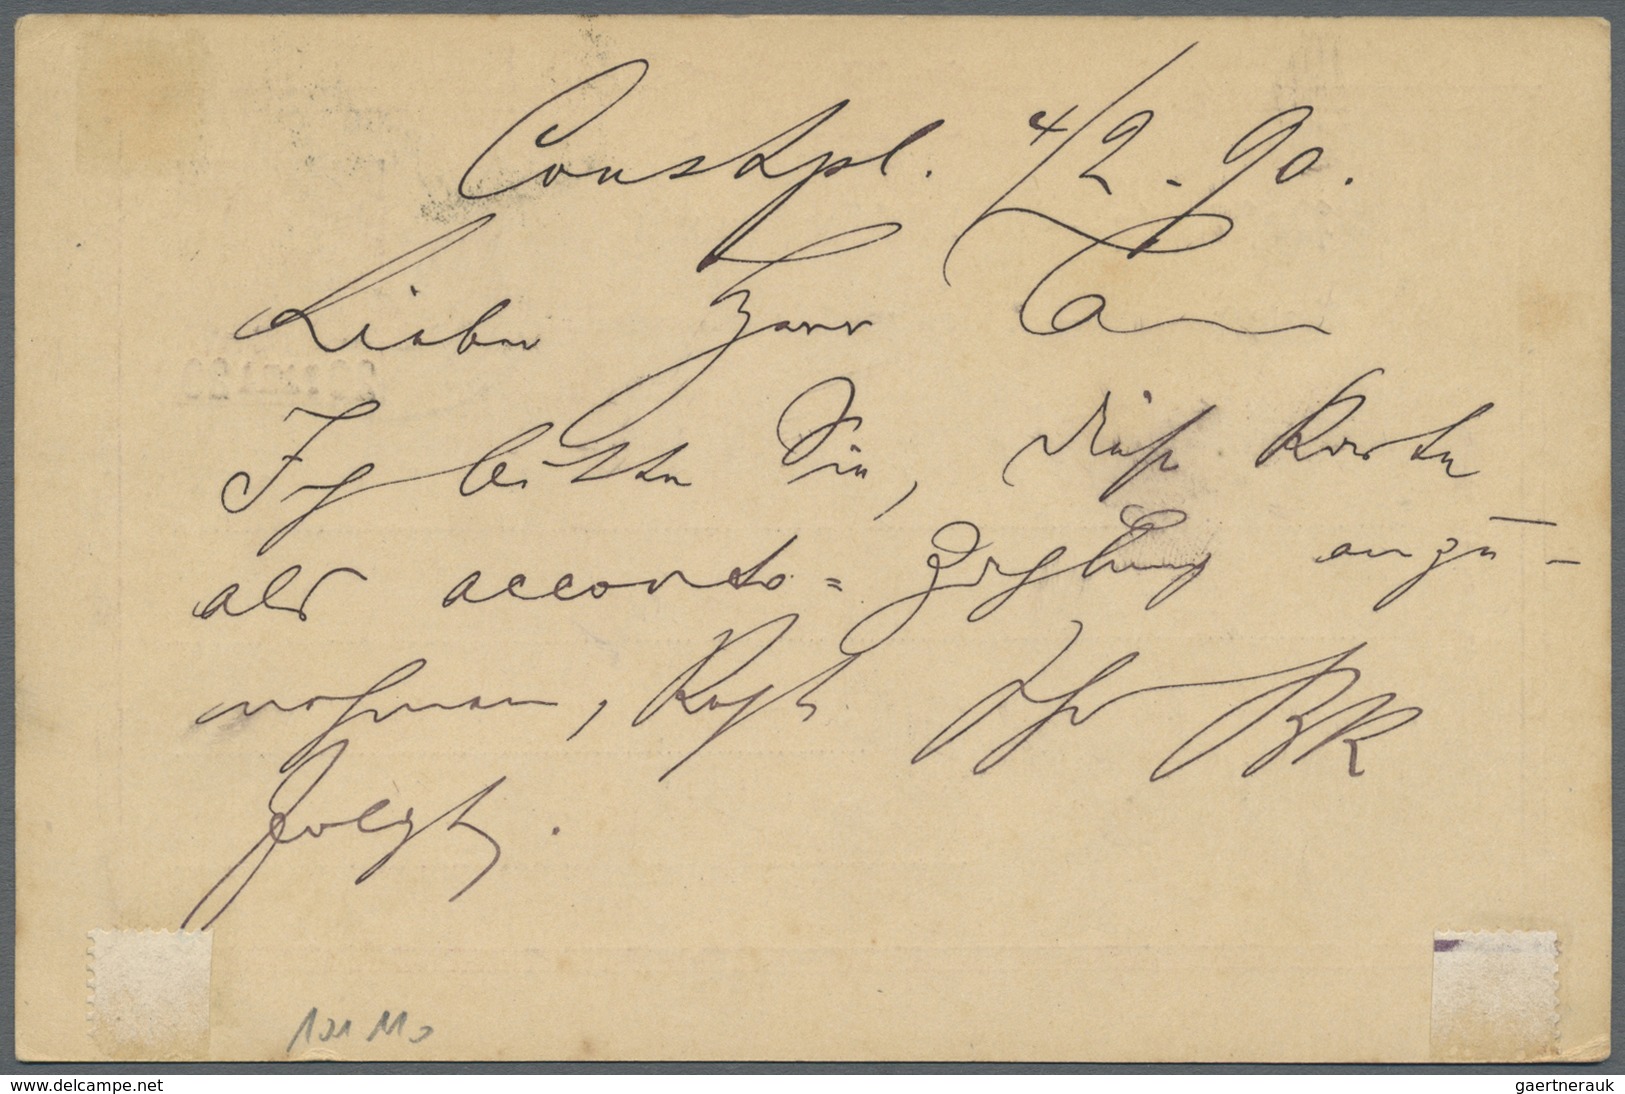 Constpl. 4/2 - 90.
Lieber Herr
Ich bitte Sie, diese Karte
als acconto = Zahlung anzu-
nehmen, Rest Ihr BK
folgt.
www.delcampe.net
gaertnerauk